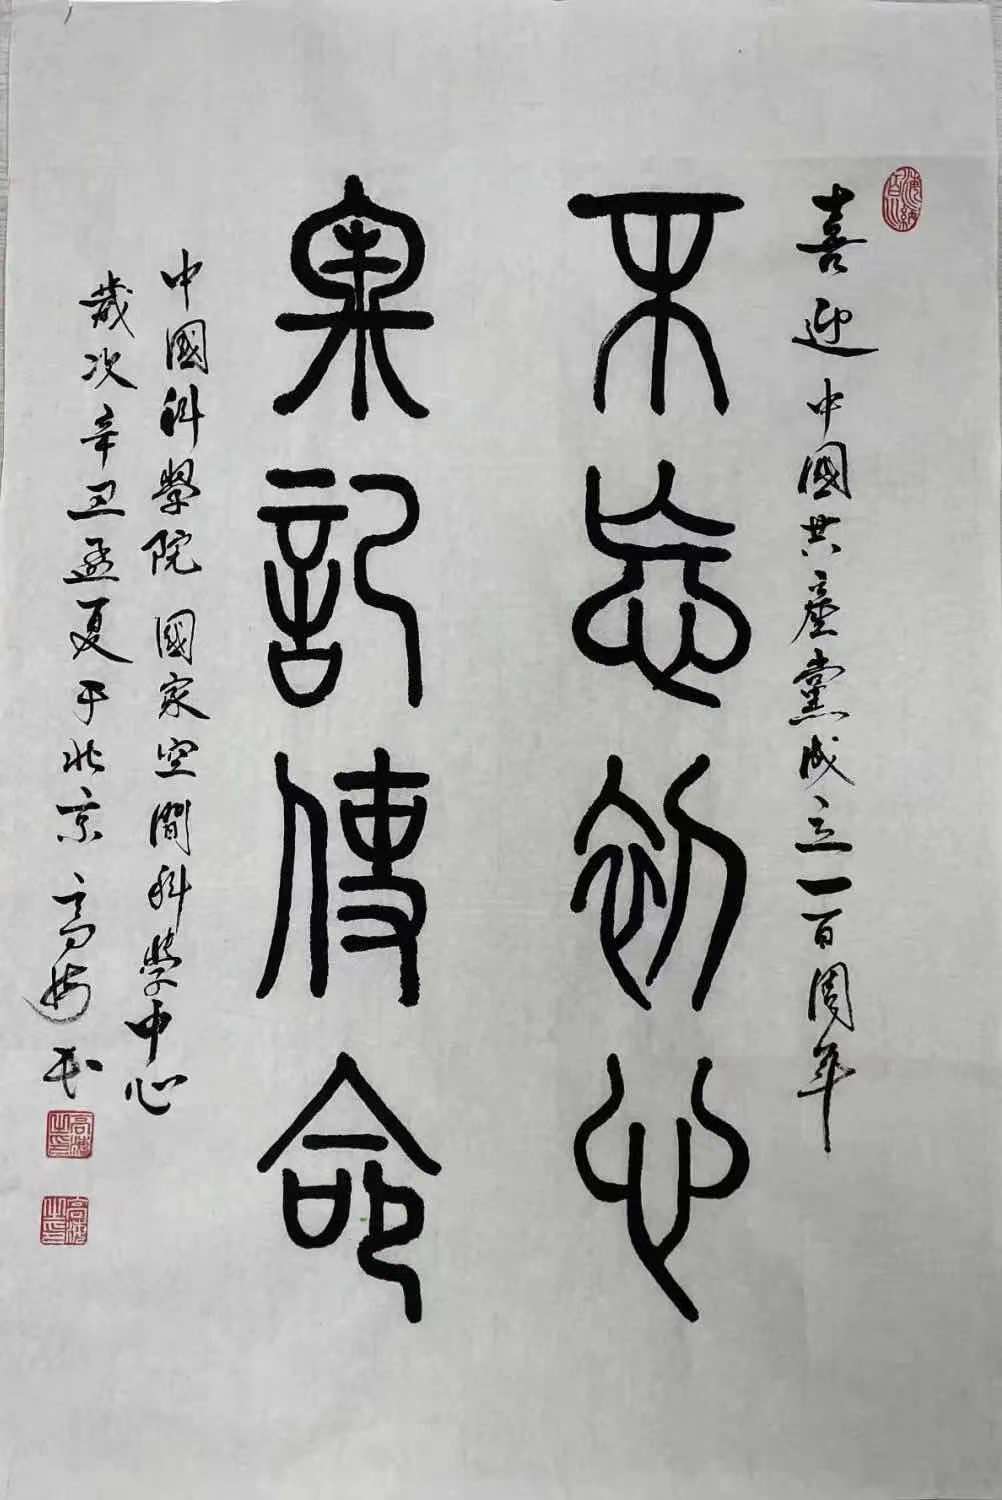 海納百川
喜迎中國共產黨成立一百周年
不忘初心
牢記使命
中國科學院國家空間科學中心
歲次辛丑孟夏于北京高